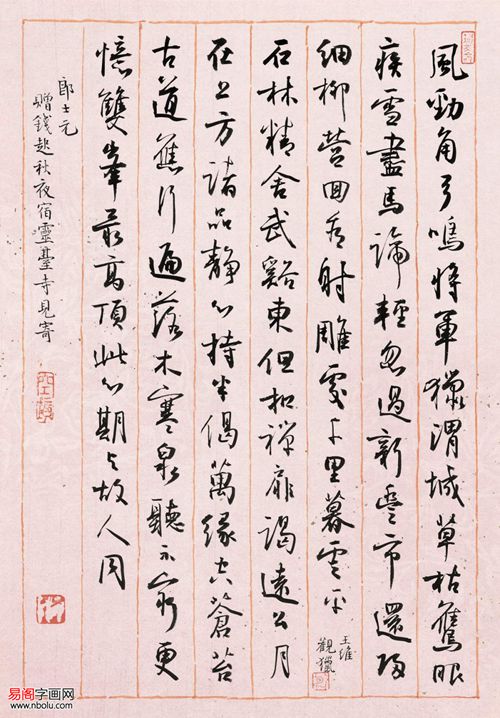 風勁角弓鳴將軍獵渭城草枯鷹眼
疾雪盡馬蹄輕忽過新豐市還歸
細柳營回看射雕處千里暮雲平
王維
觀獵
石林精舍武谿東但扣禪扉謁遠公月
在上方諸品靜心持半偈萬緣空蒼苔
古道應行遍落木寒泉聽不窮更
憶雙峯最高頂此心期與故人同
郎士元
贈錢起秋夜宿靈臺寺見寄
易阁字画网
www.nbolu.com